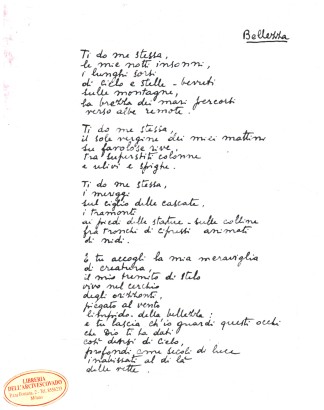 Bellezza
Ti do me stessa,
le mie notti insonni,
i lunghi sorsi
di cielo e stelle - bevuti
sulle montagne,
la brezza dei mari percorsi
verso albe remote.
Ti do me stessa,
il sole vergine dei miei mattini
su favolose rive
tra superstiti colonne
e ulivi e spighe.
Ti do me stessa,
i meriggi
sul ciglio delle cascate,
i tramonti
ai piedi delle statue - sulle colline
fra tronchi di cipressi animati
di nidi.
E tu accogli la mia meraviglia
di creatura,
il mio tremito di stelo
vivo nel cerchio
degli orizzonti,
piegato al vento
limpido - della bellezza;
e tu lascia ch'io guardi questi occhi
che Dio ti ha dati
così densi di cielo,
profondi come secoli di luce
inabissati al di là
delle vette.
LIBRERIA
DELL'ARCIVESCOVADO
Milano